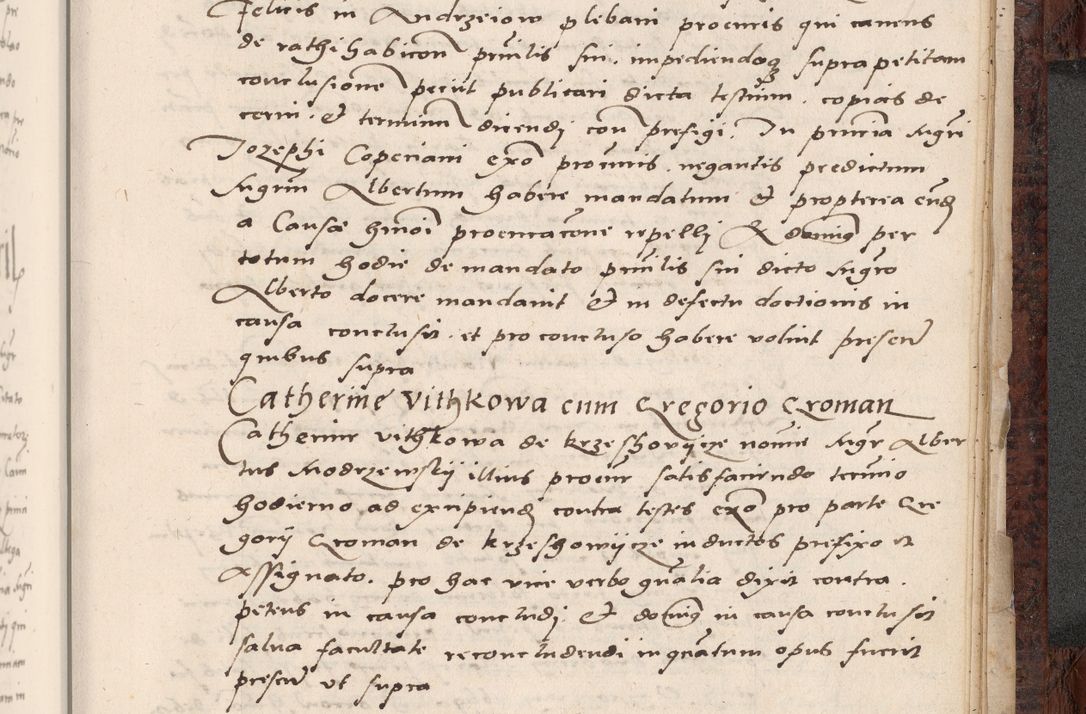 Felicis in Andrzeiow plebani procuris qui cauens
de rathihabicon prnilis sui. impediendoq supra petitam
conclusione peciit publicari dicta testium. copias de
cerni. Et terminum dicendj con prefigi. In pncia Mgri
Jozephi Copeciani exo procuris. negantis predictum
Mgrm Albertum habere mandatum Et propterea eundj
a Causae hmoi procuracone repellj Et dominus per
totum hodie de mandato prnilis sui dicto Mgro
Alberto docere mandauit Et in defectu doctionis in
causa conclusit. et pro concluso habere voluit presen
quibus supra
Catherine vithkowa cum Gregorio Groman
Catherine vithkowa de krzeshovijcze nomine Mgr Alber
tus Modrzewskij illius procur satisfaciendo termino
hodierno ad excipiendj contra testes exo pro parte Gre
gorij Groman de krzeshowijcze inductos prefixo et
Assignato. pro hac vice verbo gnalia dixit contra.
petens in causa concludj. Et dominus in causa conclusit
salua facultate reconcludendi inquantum opus fuerit
presen vt supra